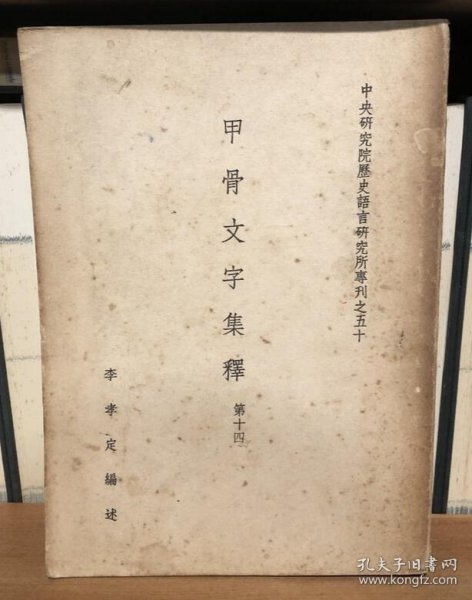 中央研究院歷史語言研究所專刊之五十
甲骨文字集釋 第十四
李孝定編述
孔夫子旧书网
www.kongfz.com